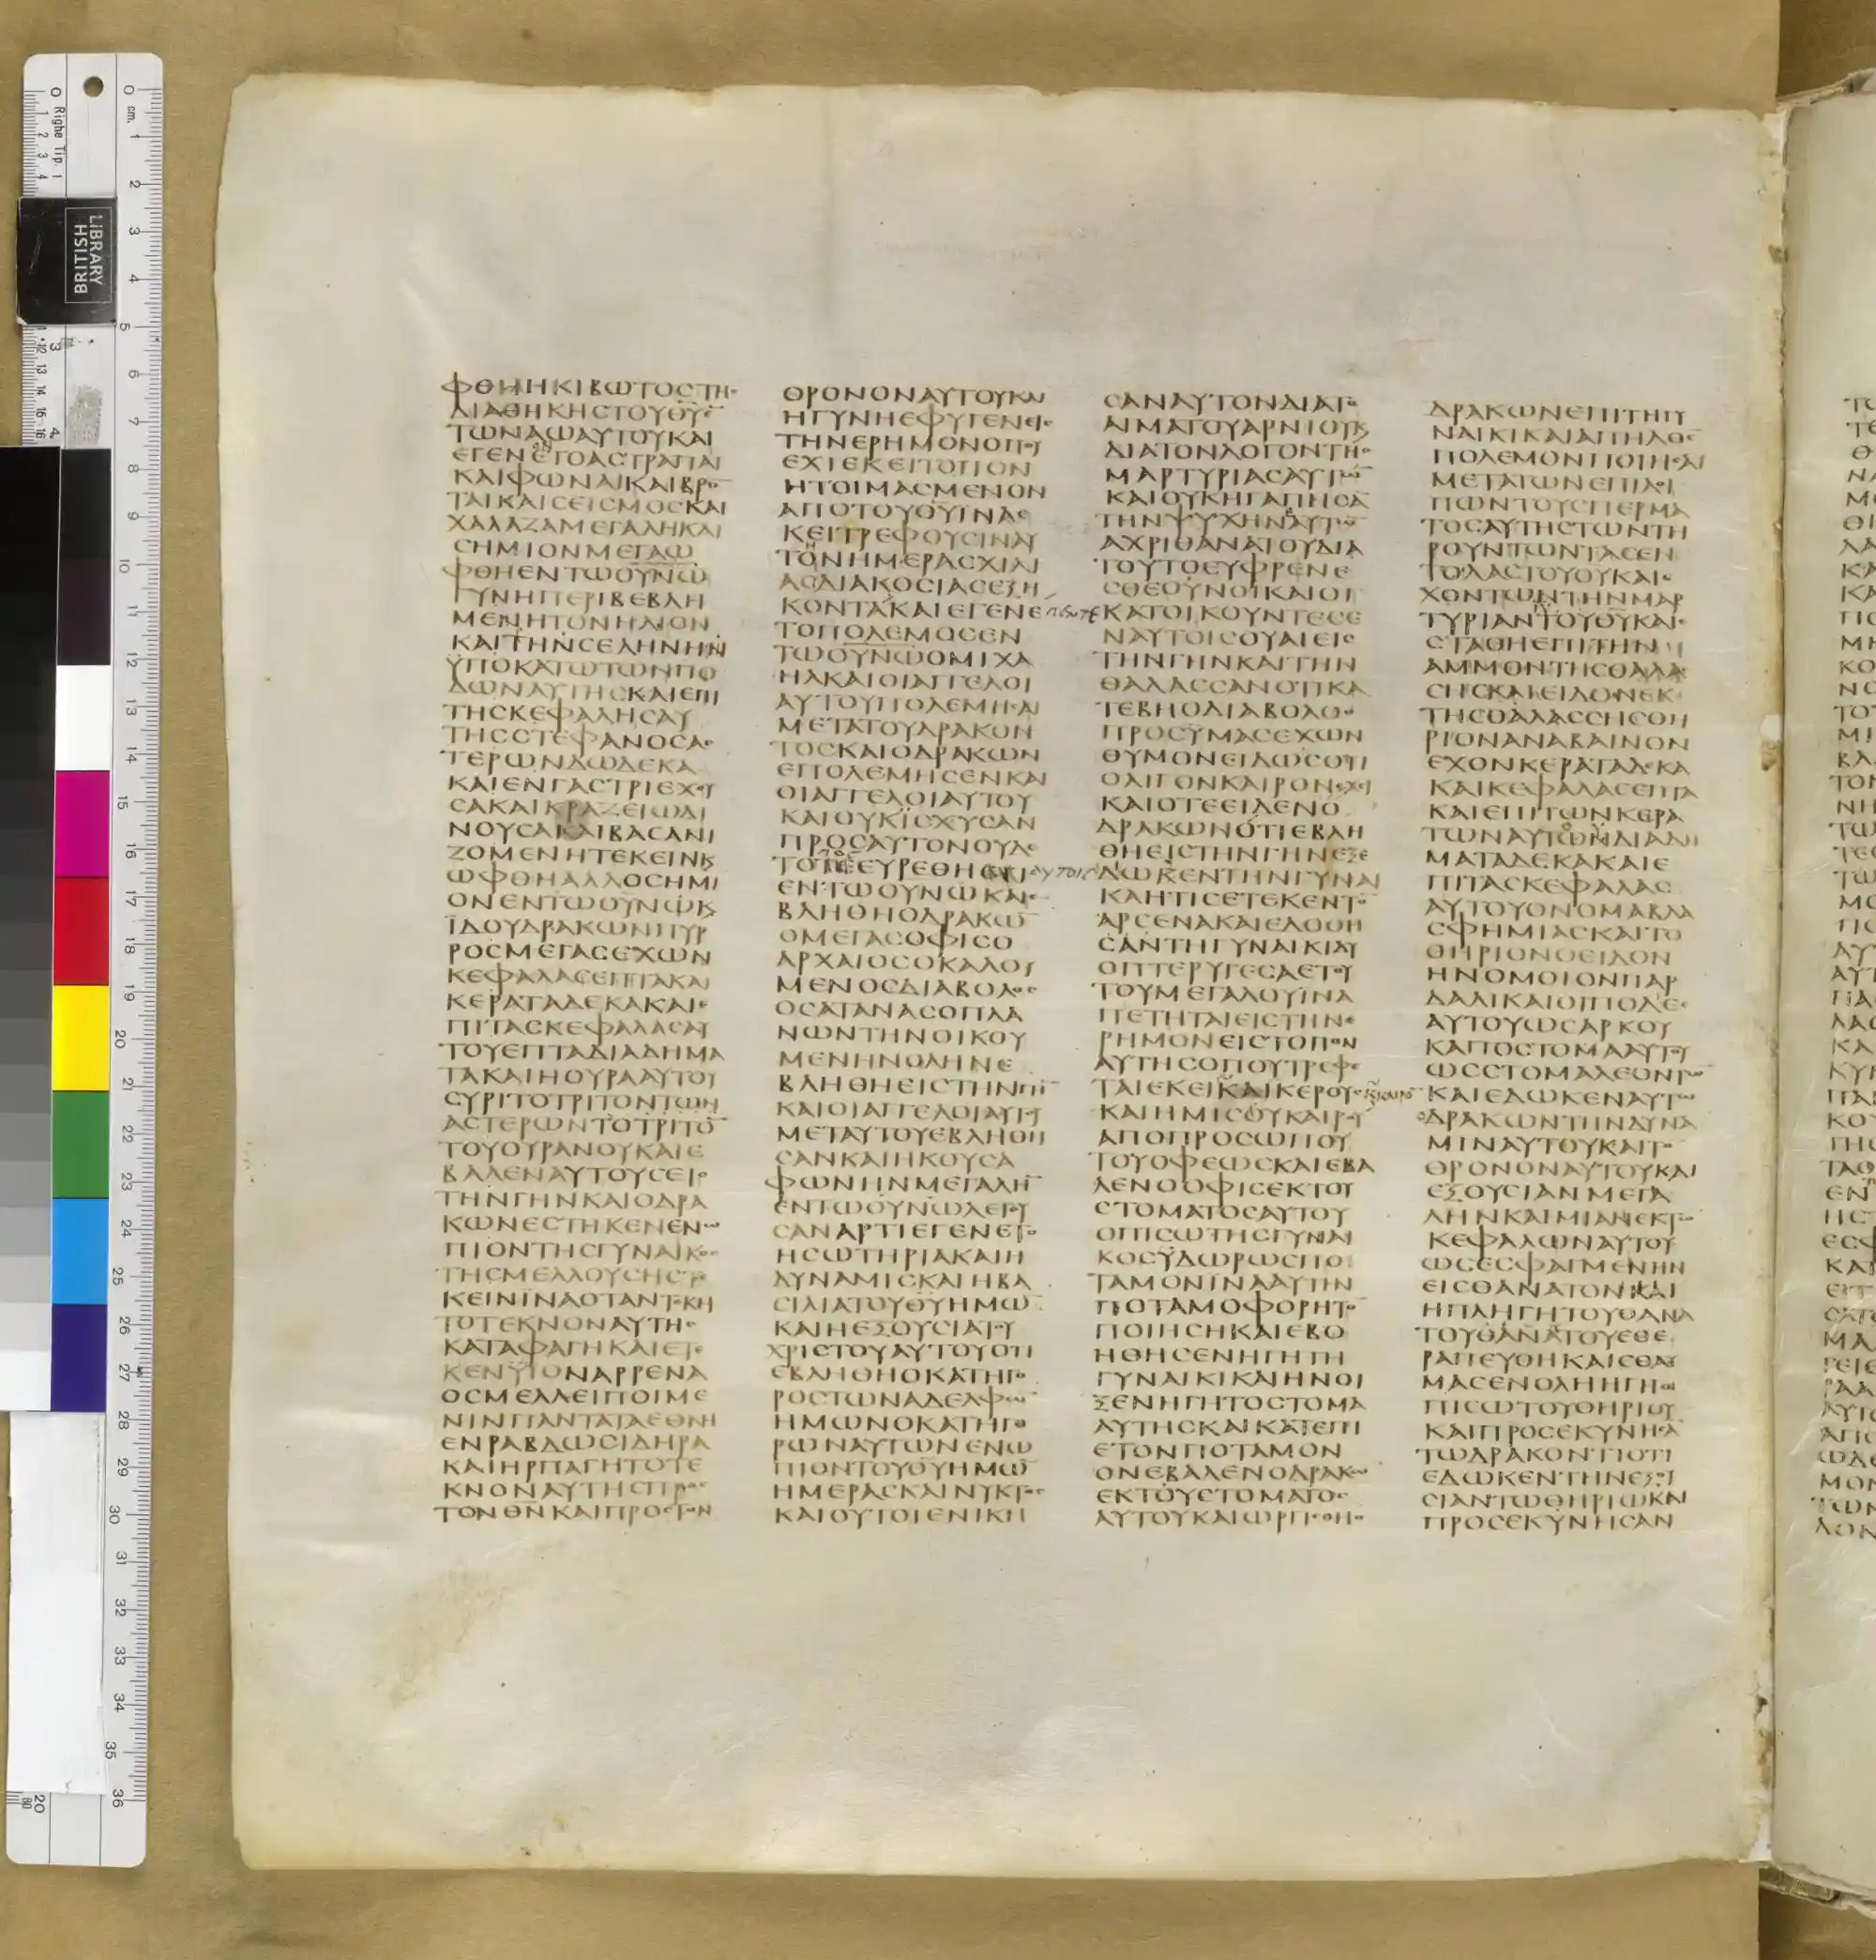 ΦΘΗΗΚΙΒΩΤΟϹΤΗϹ
ΔΙΑΘΗΚΗϹΤΟΥΘΥ
ΤΩΝΑΩΑΥΤΟΥΚΑΙ
ΕΓΕΝΕΤΟΑϹΤΡΑΠΑΙ
ΚΑΙΦΩΝΑΙΚΑΙΒΡΟ
ΤΑΙΚΑΙϹΕΙϹΜΟϹΚΑΙ
ΧΑΛΑΖΑΜΕΓΑΛΗΚΑΙ
ϹΗΜΙΟΝΜΕΓΑΩ
ΦΘΗΕΝΤΩΟΥΝΩ
ΓΥΝΗΠΕΡΙΒΕΒΛΗ
ΜΕΝΗΤΟΝΗΛΙΟΝ
ΚΑΙΤΗΝϹΕΛΗΝΗΝ
ΫΠΟΚΑΤΩΤΩΝΠΟ
ΔΩΝΑΥΤΗϹΚΑΙΕΠΙ
ΤΗϹΚΕΦΑΛΗϹΑΥ
ΤΗϹϹΤΕΦΑΝΟϹΑϹ
ΤΕΡΩΝΔΩΔΕΚΑ
ΚΑΙΕΝΓΑϹΤΡΙΕΧΟΥ
ϹΑΚΑΙΚΡΑΖΕΙΩΔΙ
ΝΟΥϹΑΚΑΙΒΑϹΑΝΙ
ΖΟΜΕΝΗΤΕΚΕΙΝϏ
ΩΦΘΗΑΛΛΟϹΗΜΙ
ΟΝΕΝΤΩΟΥΝΩϏ
ΪΔΟΥΔΡΑΚΩΝΠΥΡ
ΡΟϹΜΕΓΑϹΕΧΩΝ
ΚΕΦΑΛΑϹΕΠΤΑΚΑΙ
ΚΕΡΑΤΑΔΕΚΑΚΑΙΕ
ΠΙΤΑϹΚΕΦΑΛΑϹΑΥ
ΤΟΥΕΠΤΑΔΙΑΔΗΜΑ
ΤΑΚΑΙΗΟΥΡΑΑΥΤΟΥ
ϹΥΡΙΤΟΤΡΙΤΟΝΤΩΝ
ΑϹΤΕΡΩΝΤΟΤΡΙΤΟ
ΤΟΥΟΥΡΑΝΟΥΚΑΙΕ
ΒΑΛΕΝΑΥΤΟΥϹΕΙϹ
ΤΗΝΓΗΝΚΑΙΟΔΡΑ
ΚΩΝΕϹΤΗΚΕΝΕΝΩ
ΠΙΟΝΤΗϹΓΥΝΑΙΚΟϹ
ΤΗϹΜΕΛΛΟΥϹΗϹΤΕ
ΚΕΙΝΙΝΑΟΤΑΝΤΕΚΗ
ΤΟΤΕΚΝΟΝΑΥΤΗϹ
ΚΑΤΑΦΑΓΗΚΑΙΕΤΕ
ΚΕΝΫΙΟΝΑΡΡΕΝΑ
ΟϹΜΕΛΛΕΙΠΟΙΜΕ
ΝΙΝΠΑΝΤΑΤΑΕΘΝΗ
ΕΝΡΑΒΔΩϹΙΔΗΡΑ
ΚΑΙΗΡΠΑΓΗΤΟΤΕ
ΚΝΟΝΑΥΤΗϹΠΡΟϹ
ΤΟΝΘΝΚΑΙΠΡΟϹΤΟΝ
ΘΡΟΝΟΝΑΥΤΟΥΚΑΙ
ΗΓΥΝΗΕΦΥΓΕΝΕΙϹ
ΤΗΝΕΡΗΜΟΝΟΠΟΥ
ΕΧΙΕΚΕΙΤΟΠΟΝ
ΗΤΟΙΜΑϹΜΕΝΟΝ
ΑΠΟΤΟΥΘΥΪΝΑΕ
ΚΕΙΤΡΕΦΟΥϹΙΝΑΥ
ΤΟΝΗΜΕΡΑϹΧΙΛΙ
ΑϹΔΙΑΚΟϹΙΑϹΕΞΗ
ΚΟΝΤΑΚΑΙΕΓΕΝΕ
ΤΟΠΟΛΕΜΟϹΕΝ
ΤΩΟΥΝΩΟΜΙΧΑ
ΗΛΚΑΙΟΙΑΓΓΕΛΟΙ
ΑΥΤΟΥΠΟΛΕΜΗϹΑΙ
ΜΕΤΑΤΟΥΔΡΑΚΟΝ
ΤΟϹΚΑΙΟΔΡΑΚΩΝ
ΕΠΟΛΕΜΗϹΕΝΚΑΙ
ΟΙΑΓΓΕΛΟΙΑΥΤΟΥ
ΚΑΙΟΥΚΪϹΧΥϹΑΝ
ΠΡΟϹΑΥΤΟΝΟΥΔΕ
ΕΝΤΩΟΥΝΩΚΑΙΕ
ΒΛΗΘΗΟΔΡΑΚΩ
ΟΜΕΓΑϹΟΦΙϹΟ
ΑΡΧΑΙΟϹΟΚΑΛΟΥ
ΜΕΝΟϹΔΙΑΒΟΛΟϹ
ΟϹΑΤΑΝΑϹΟΠΛΑ
ΝΩΝΤΗΝΟΙΚΟΥ
ΜΕΝΗΝΟΛΗΝΕ
ΒΛΗΘΗΕΙϹΤΗΝΓΗ
ΚΑΙΟΙΑΓΓΕΛΟΙΑΥΤΟΥ
ΜΕΤΑΥΤΟΥΕΒΛΗΘΗ
ϹΑΝΚΑΙΗΚΟΥϹΑ
ΦΩΝΗΝΜΕΓΑΛΗ
ΕΝΤΩΟΥΝΩΛΕΓΟΥ
ϹΑΝΑΡΤΙΕΓΕΝΕΤΟ
ΗϹΩΤΗΡΙΑΚΑΙΗ
ΔΥΝΑΜΙϹΚΑΙΗΒΑ
ϹΙΛΙΑΤΟΥΘΥΗΜΩ
ΚΑΙΗΕΞΟΥϹΙΑΤΟΥ
ΧΡΙϹΤΟΥΑΥΤΟΥΟΤΙ
ΕΒΛΗΘΗΟΚΑΤΗΓΟ
ΡΟϹΤΩΝΑΔΕΛΦΩ
ΗΜΩΝΟΚΑΤΗΓΟ
ΡΩΝΑΥΤΩΝΕΝΩ
ΠΙΟΝΤΟΥΘΥΗΜΩ
ΗΜΕΡΑϹΚΑΙΝΥΚΤΟϹ
ΚΑΙΟΥΤΟΙΕΝΙΚΗ
ϹΑΝΑΥΤΟΝΔΙΑΤΟ
ΑΙΜΑΤΟΥΑΡΝΙΟΥϏ
ΔΙΑΤΟΝΛΟΓΟΝΤΗϹ
ΜΑΡΤΥΡΙΑϹΑΥΤΩ
ΚΑΙΟΥΚΗΓΑΠΗϹΑ
ΤΗΝΨΥΧΗΝΑΥΤΩ
ΑΧΡΙΘΑΝΑΤΟΥΔΙΑ
ΤΟΥΤΟΕΥΦΡΕΝΕ
ϹΘΕΟΥΝΟΙΚΑΙΟΙ
ΚΑΤΟΙΚΟΥΝΤΕϹΕ
ΝΑΥΤΟΙϹΟΥΑΙΕΙϹ
ΤΗΝΓΗΝΚΑΙΤΗΝ
ΘΑΛΑϹϹΑΝΟΤΙΚΑ
ΤΕΒΗΟΔΙΑΒΟΛΟϹ
ΠΡΟϹΥΜΑϹΕΧΩΝ
ΘΥΜΟΝΕΙΔΩϹΟΤΙ
ΟΛΙΓΟΝΚΑΙΡΟΝΕΧΕΙ
ΚΑΙΟΤΕΕΙΔΕΝΟ
ΔΡΑΚΩΝΟΤΙΕΒΛΗ
ΘΗΕΙϹΤΗΝΓΗΝΕΞΕ
ΔΩΚΕΝΤΗΝΓΥΝΑΙ
ΚΑΗΤΙϹΕΤΕΚΕΝΤΟ
ΑΡϹΕΝΑΚΑΙΕΔΟΘΗ
ϹΑΝΤΗΓΥΝΑΙΚΙΔΥ
ΟΠΤΕΡΥΓΕϹΑΕΤΟΥ
ΤΟΥΜΕΓΑΛΟΥΪΝΑ
ΠΕΤΗΤΑΙΕΙϹΤΗΝΕ
ΡΗΜΟΝΕΙϹΤΟΠΟΝ
ΑΥΤΗϹΟΠΟΥΤΡΕΦΕ
ΤΑΙΕΚΕΙΚΑΙΚΕΡΟΥϹ
ΚΑΙΗΜΙϹΟΥΚΑΙΡΟΥ
ΑΠΟΠΡΟϹΩΠΟΥ
ΤΟΥΟΦΕΩϹΚΑΙΕΒΑ
ΛΕΝΟΟΦΙϹΕΚΤΟΥ
ϹΤΟΜΑΤΟϹΑΥΤΟΥ
ΟΠΙϹΩΤΗϹΓΥΝΑΙ
ΚΟϹΫΔΩΡΩϹΠΟ
ΤΑΜΟΝΙΝΑΑΥΤΗΝ
ΠΟΤΑΜΟΦΟΡΗΤΟ
ΠΟΙΗϹΗΚΑΙΕΒΟ
ΗΘΗϹΕΝΗΓΗΤΗ
ΓΥΝΑΙΚΙΚΑΙΗΝΟΙ
ΞΕΝΗΓΗΤΟϹΤΟΜΑ
ΑΥΤΗϹΚΑΙΚΑΤΕΠΙ
ΕΤΟΝΠΟΤΑΜΟΝ
ΟΝΕΒΑΛΕΝΟΔΡΑΚΩ
ΕΚΤΟΥϹΤΟΜΑΤΟϹ
ΑΥΤΟΥΚΑΙΩΡΓΙϹΘΗΟ
ΔΡΑΚΩΝΕΠΙΤΗΓΥ
ΝΑΙΚΙΚΑΙΑΠΗΛΘΕ
ΠΟΛΕΜΟΝΠΟΙΗϹΑΙ
ΜΕΤΑΤΩΝΕΠΙΛΟΙ
ΠΩΝΤΟΥϹΠΕΡΜΑ
ΤΟϹΑΥΤΗϹΤΩΝΤΗ
ΡΟΥΝΤΩΝΤΑϹΕΝ
ΤΟΛΑϹΤΟΥΘΥΚΑΙΕ
ΧΟΝΤΩΝΤΗΝΜΑΡ
ΤΥΡΙΑΝΤΟΥΘΥΚΑΙΕ
ϹΤΑΘΗΕΠΙΤΗΝ
ΑΜΜΟΝΤΗϹΘΑΛΑϹ
ϹΗϹΚΑΙΕΙΔΟΝΕΚ
ΤΗϹΘΑΛΑϹϹΗϹΘΗ
ΡΙΟΝΑΝΑΒΑΙΝΟΝ
ΕΧΟΝΚΕΡΑΤΑΔΕΚΑ
ΚΑΙΚΕΦΑΛΑϹΕΠΤΑ
ΚΑΙΕΠΙΤΩΝΚΕΡΑ
ΤΩΝΑΥΤΩΝΔΙΑΔΗ
ΜΑΤΑΔΕΚΑΚΑΙΕ
ΠΙΤΑϹΚΕΦΑΛΑϹ
ΑΥΤΟΥΟΝΟΜΑΒΛΑ
ϹΦΗΜΙΑϹΚΑΙΤΟ
ΘΗΡΙΟΝΟΕΙΔΟΝ
ΗΝΟΜΟΙΟΝΠΑΡ
ΔΑΛΙΚΑΙΟΙΠΟΔΕϹ
ΑΥΤΟΥΩϹΑΡΚΟΥ
ΚΑΙΤΟϹΤΟΜΑΑΥΤΟΥ
ΩϹϹΤΟΜΑΛΕΟΝΤΩ
ΚΑΙΕΔΩΚΕΝΑΥΤΩ
ΟΔΡΑΚΩΝΤΗΝΔΥΝΑ
ΜΙΝΑΥΤΟΥΚΑΙΤΟ
ΘΡΟΝΟΝΑΥΤΟΥΚΑΙ
ΕΞΟΥϹΙΑΝΜΕΓΑ
ΛΗΝΚΑΙΜΙΑΝΕΚΤΩ
ΚΕΦΑΛΩΝΑΥΤΟΥ
ΩϹΕϹΦΑΓΜΕΝΗΝ
ΕΙϹΘΑΝΑΤΟΝΚΑΙ
ΗΠΛΗΓΗΤΟΥΘΑΝΑ
ΤΟΥΘΑΝΑΤΟΥΕΘΕ
ΡΑΠΕΥΘΗΚΑΙΕΘΑΥ
ΜΑϹΕΝΟΛΗΗΓΗΟ
ΠΙϹΩΤΟΥΘΗΡΙΟΥ
ΚΑΙΠΡΟϹΕΚΥΝΗϹΑ
ΤΩΔΡΑΚΟΝΤΙΟΤΙ
ΕΔΩΚΕΝΤΗΝΕΞΟΥ
ϹΙΑΝΤΩΘΗΡΙΩΚΑΙ
ΠΡΟϹΕΚΥΝΗϹΑΝ
BRITISH
LIBRARY